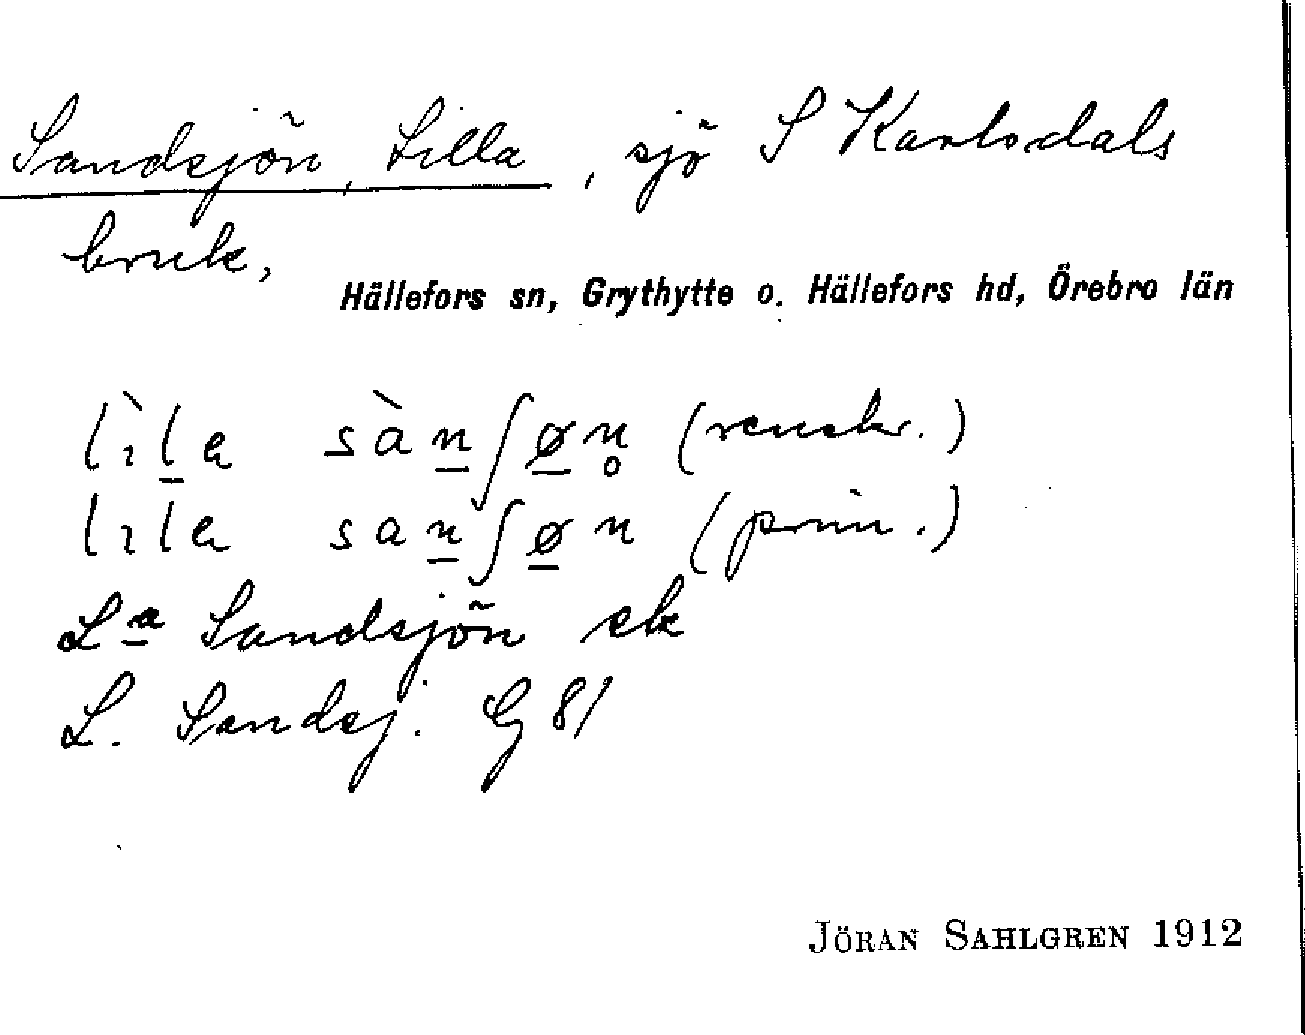 Sandsjön, Lilla, sjö S Karlsdals
bruk,
Hällefors sn, Grythytte o. Hällefors hd, Örebro län
lìla sànʃøn̥ (renskr.)
lila sanʃøn (prim.)
La Sandsjön ek
L. Sandsj. G 81
JÖRAN SAHLGREN 1912